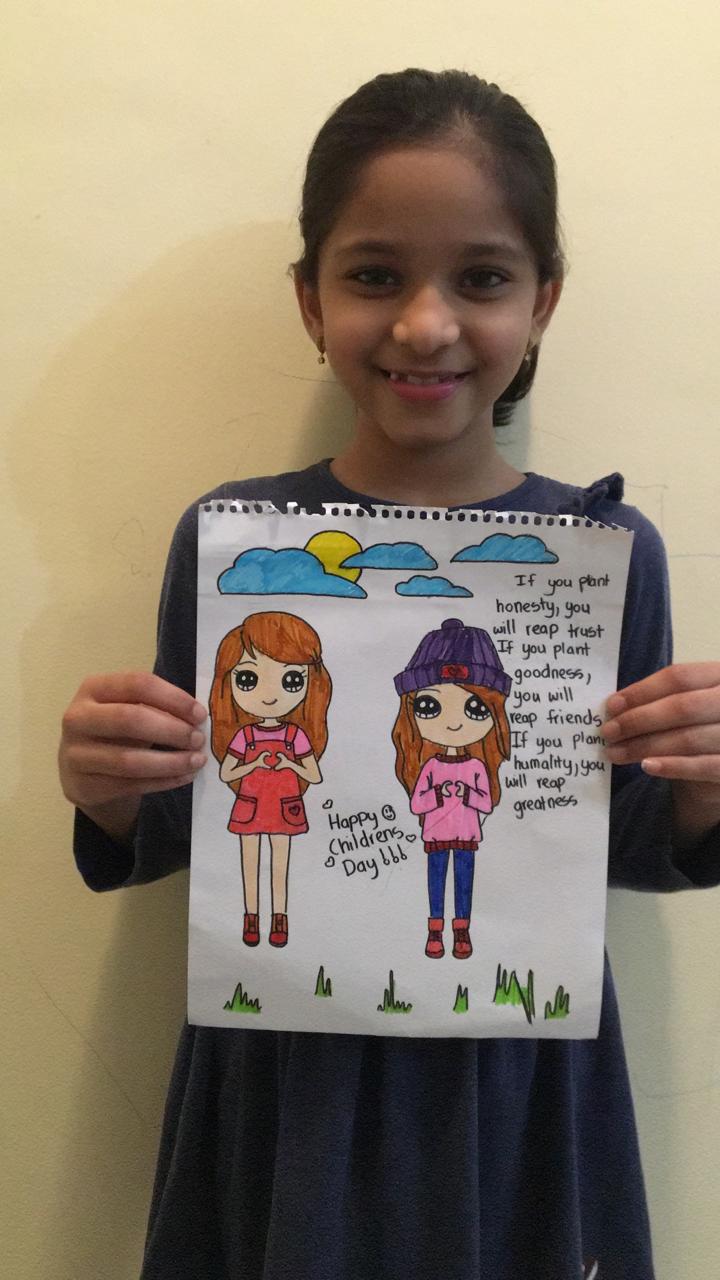 If you plant
honesty, you
will reap trust
If you plant
goodness,
you will
reap friends
If you plant
humality, you
will reap
greatness
Happy
Childrens
Day !!!